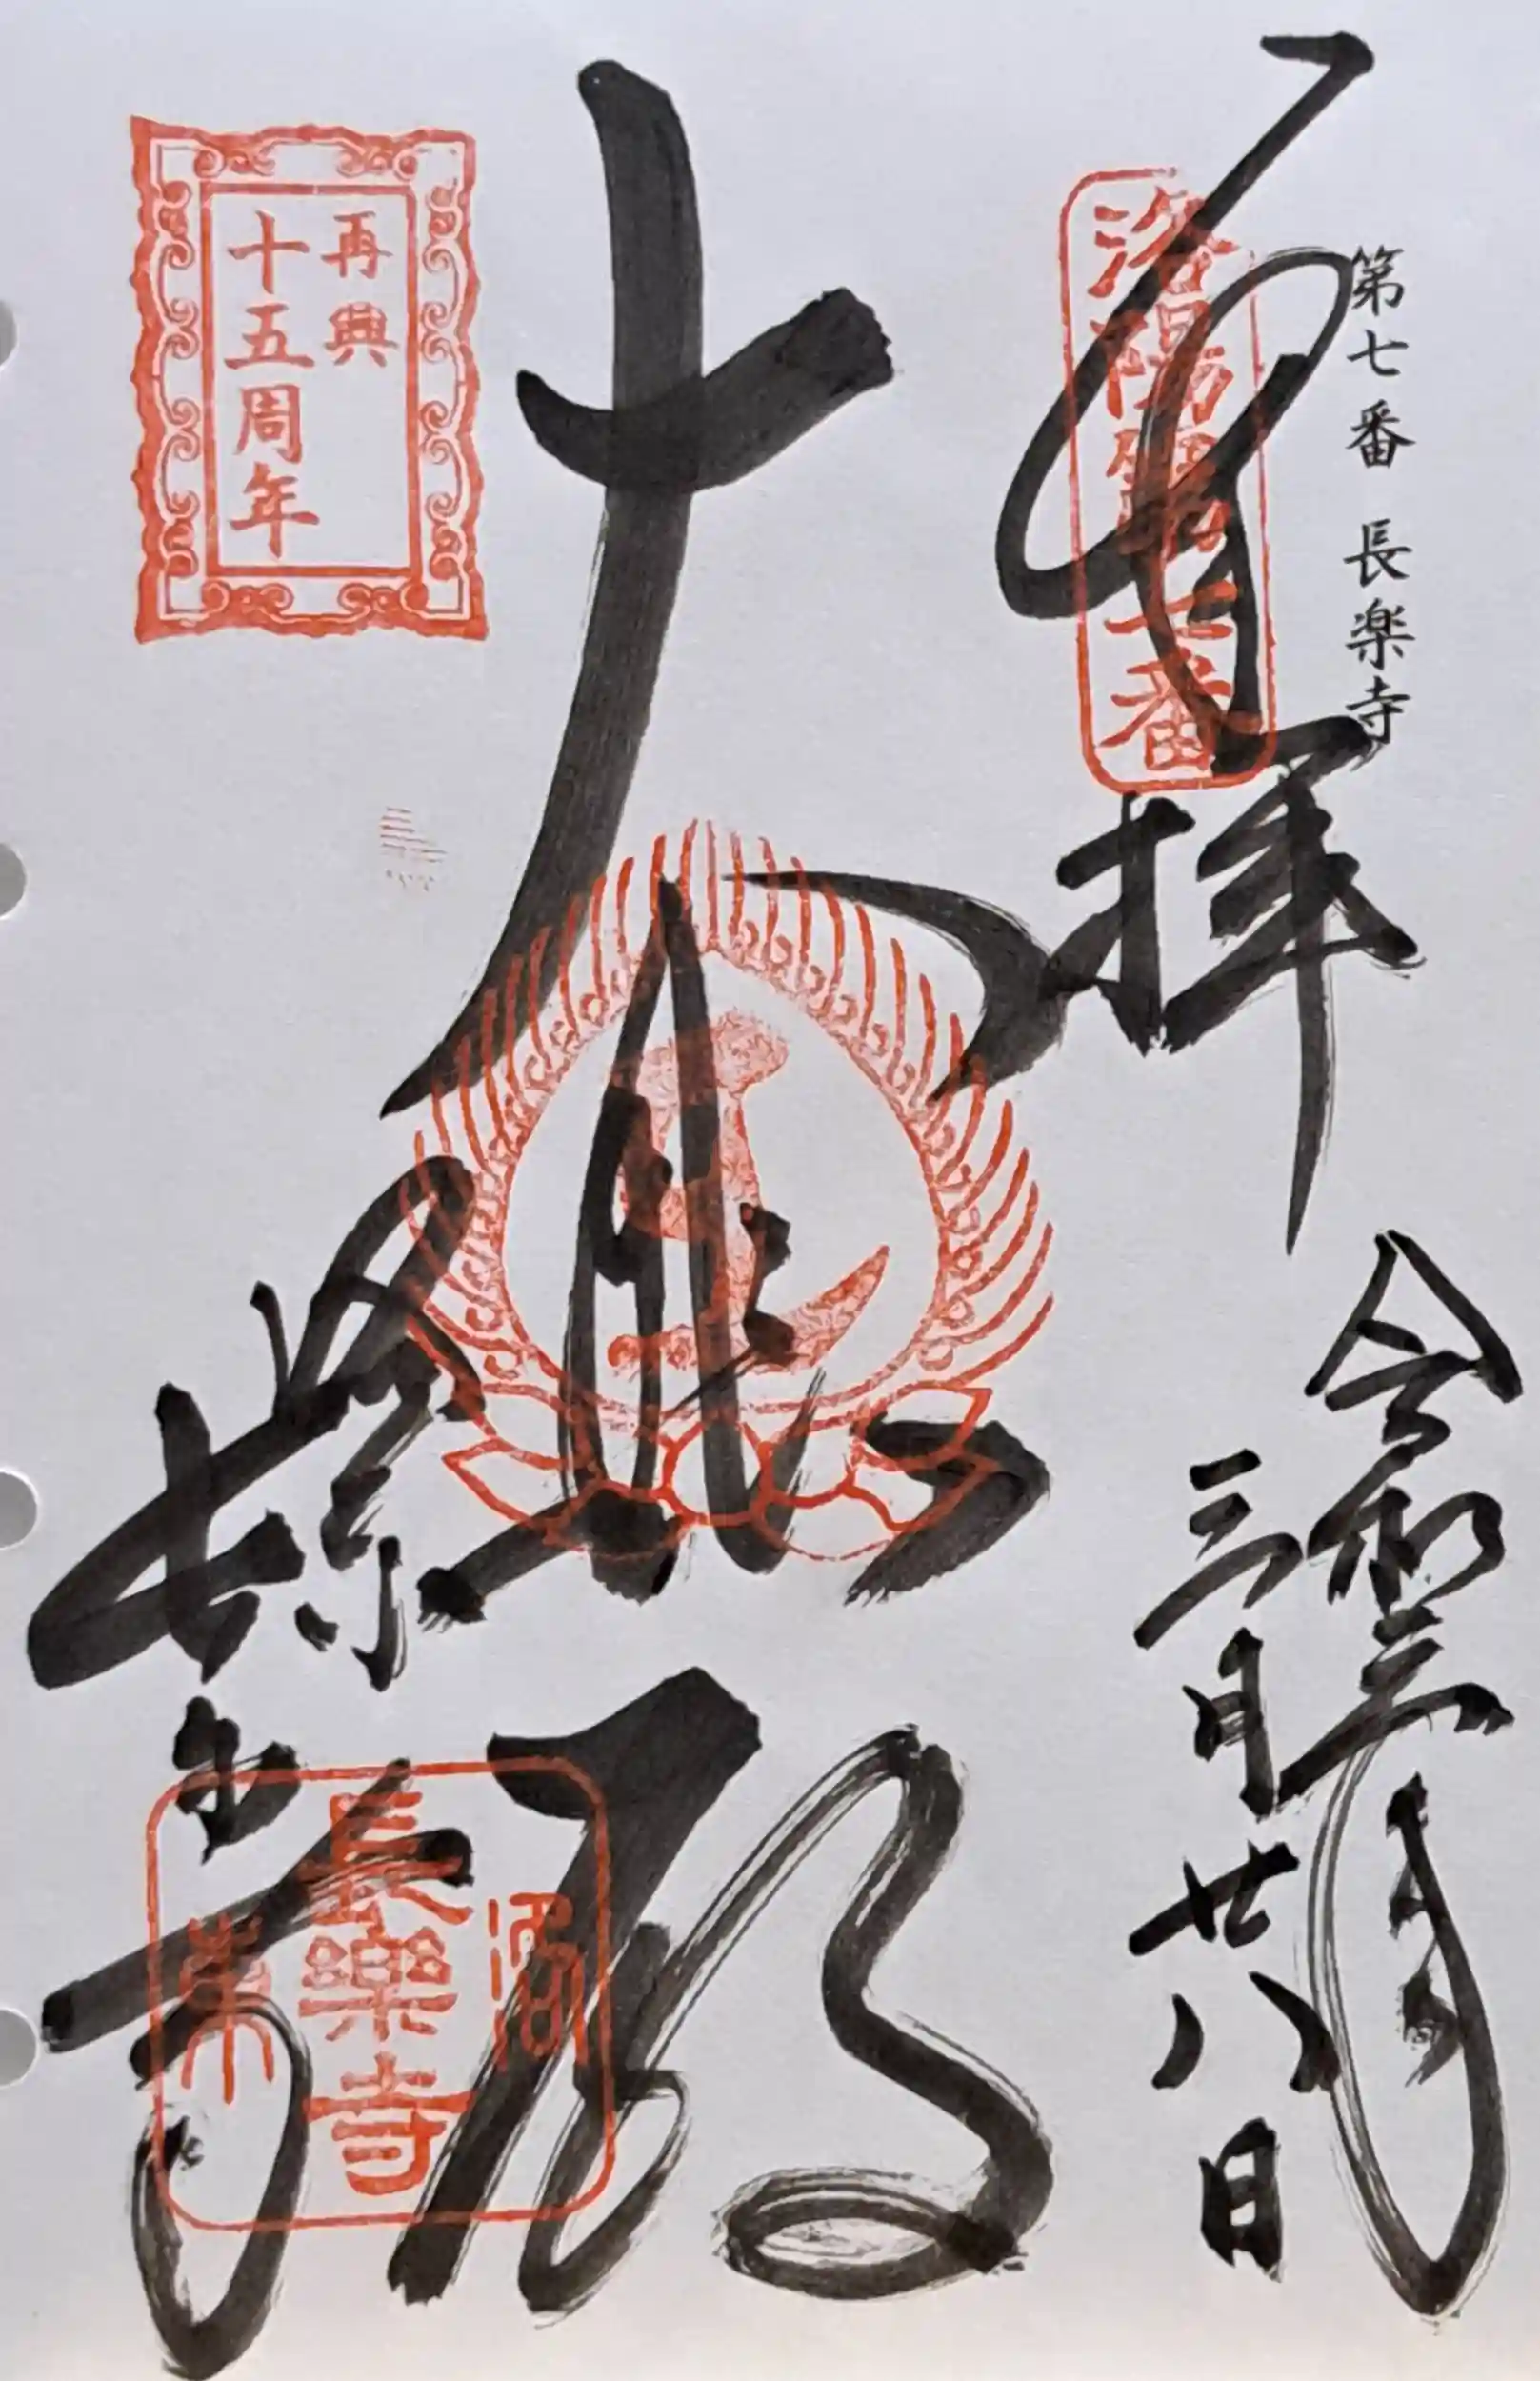 第七番 長楽寺
奉拝
洛陽第七番
令和三年
三月廿八日
大悲殿
長楽寺
再興
十五周年
洛
長樂寺
東